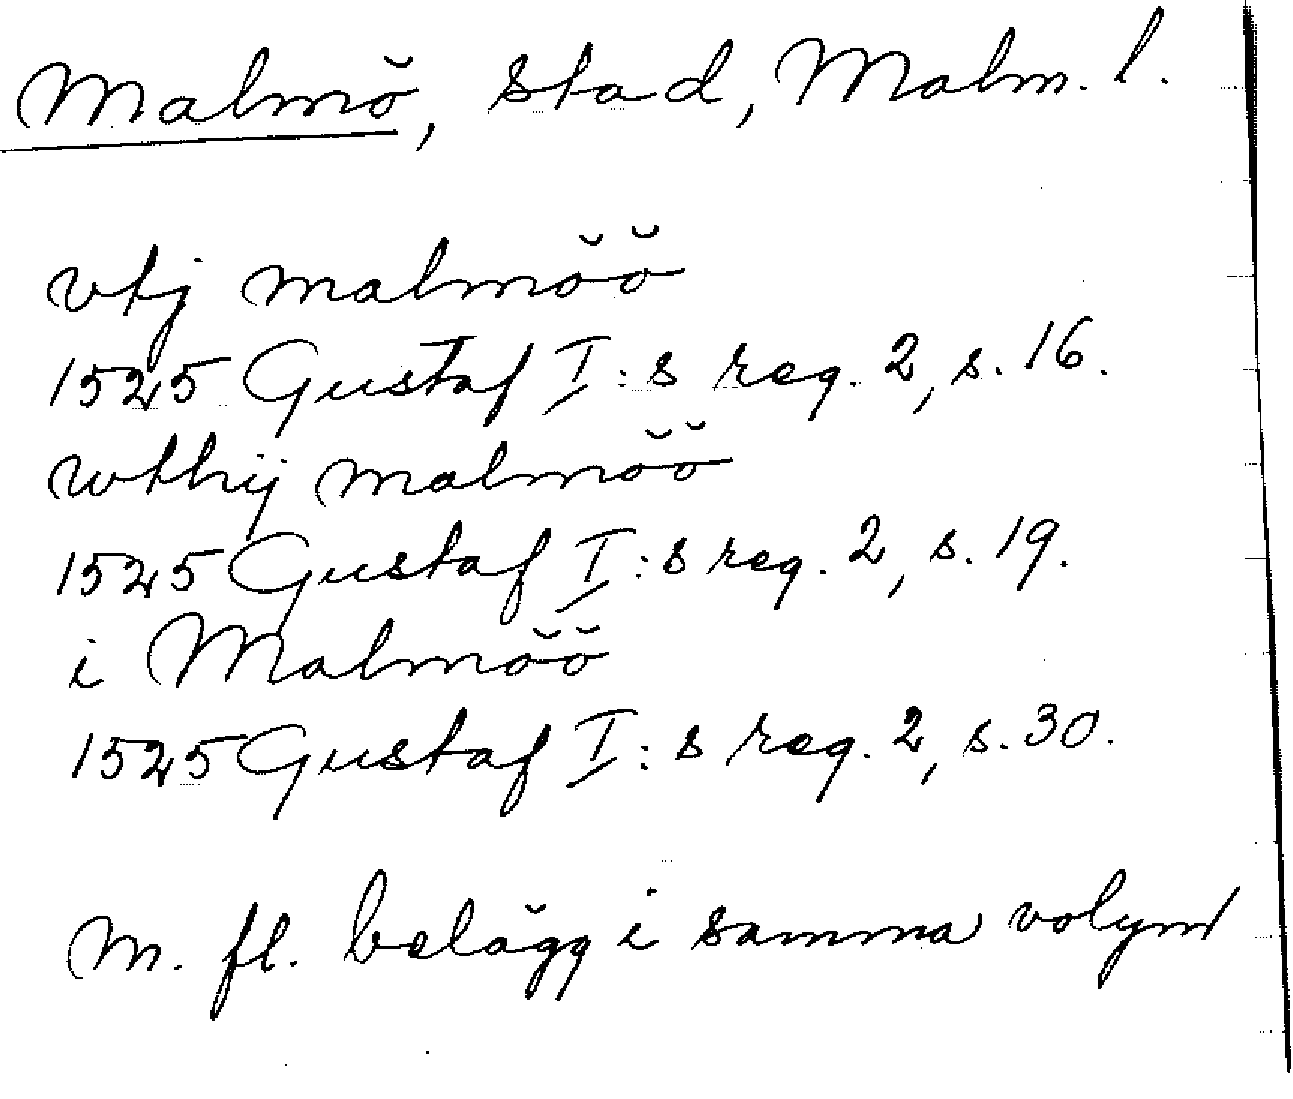 Malmö, stad, Malm. l.
vtj malmöö
1525 Gustaf I:s reg. 2, s. 16.
wthij malmöö
1525 Gustaf I:s reg. 2, s. 19.
i Malmöö
1525 Gustaf I:s reg. 2, s. 30.
m. fl. belägg i samma volym